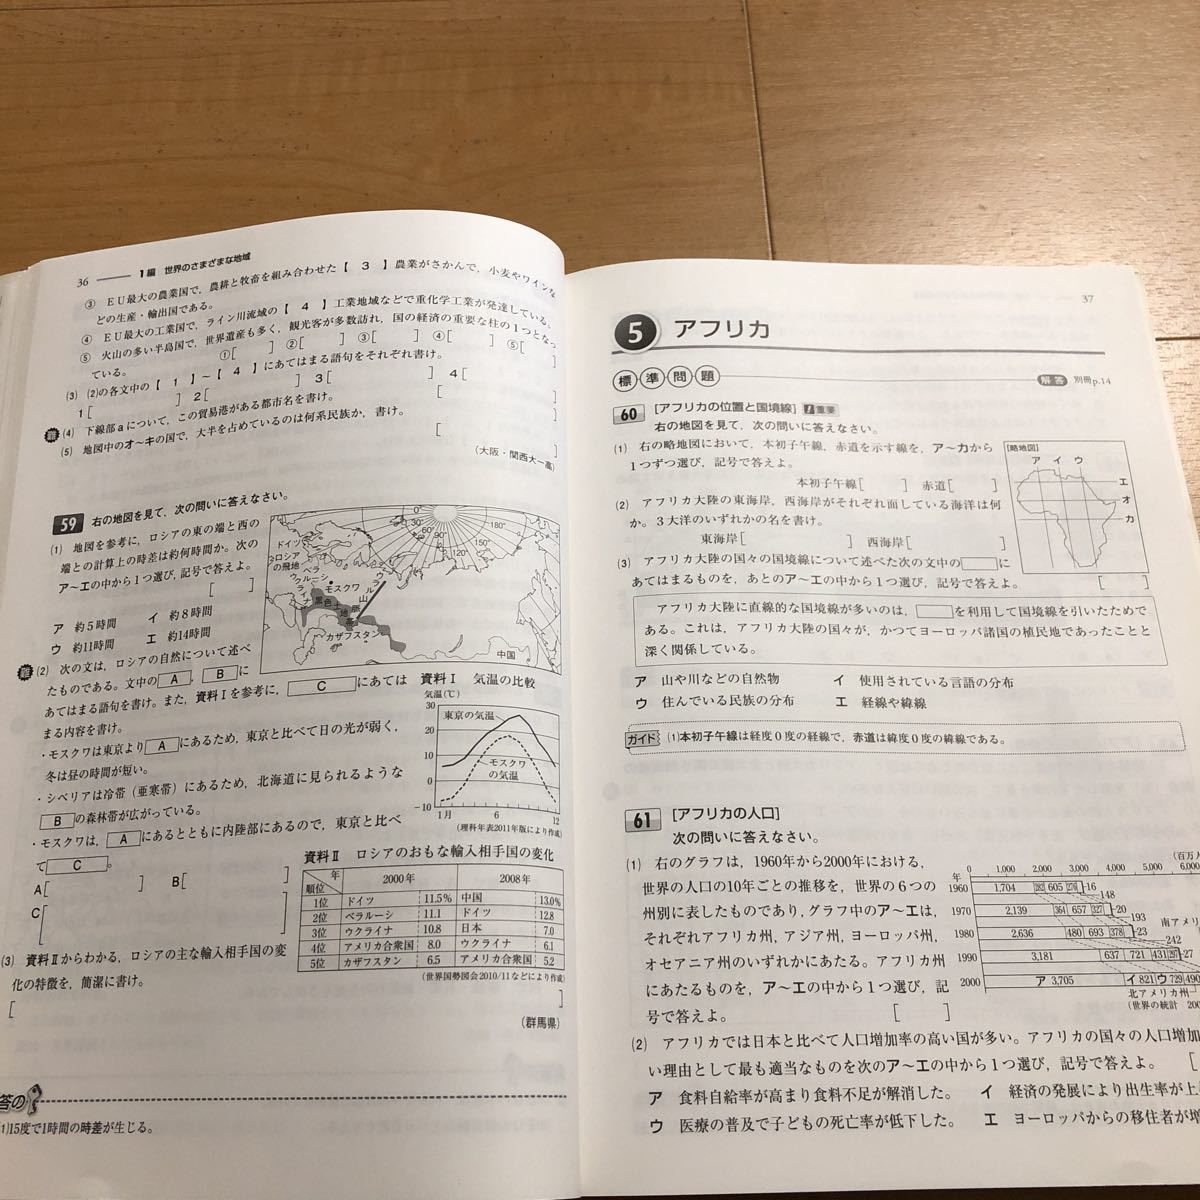 36 1編 世界のさまざまな地域
③ EU最大の農業国で，農耕と牧畜を組み合わせた【 3 】農業がさかんで，小麦やワインな
どの生産・輸出国である。
④ EU最大の工業国で，ライン川流域の【 4 】工業地域などで重化学工業が発達している。
⑤ 火山の多い半島国で，世界遺産も多く，観光客が多数訪れ，国の経済の重要な柱の1つとなっ
ている。 ①[ ] ②[ ] ③[ ] ④[ ] ⑤[ ]
(3) (2)の各文中の【 1 】～【 4 】にあてはまる語句をそれぞれ書け。
1[ ] 2[ ] 3[ ] 4[ ]
難 (4) 下線部aについて，この貿易港がある都市名を書け。 [ ]
(5) 地図中のオ～キの国で，大半を占めているのは何系民族か，書け。 [ ]
(大阪・関西大一高)
59 右の地図を見て，次の問いに答えなさい。
(1) 地図を参考に，ロシアの東の端と西の
端との計算上の時差は約何時間か。次の
ア～エの中から1つ選び，記号で答えよ。
[ ]
ア 約5時間 イ 約8時間
ウ 約11時間 エ 約14時間
0° 30° 60° 90° 120° 150° 180° 150°
ドイツ
ロシアの飛地
ベラルーシ
ウクライナ
モスクワ
ウラル山脈
黒色土地帯
カザフスタン
中国
難 (2) 次の文は，ロシアの自然について述べ
たものである。文中の A ， B に
あてはまる語句を書け。また，資料Ⅰを参考に， C にあては
まる内容を書け。
・モスクワは東京より A にあるため，東京と比べて日の光が弱く，
冬は昼の時間が短い。
・シベリアは冷帯（亜寒帯）にあるため，北海道に見られるような
B の森林帯が広がっている。
・モスクワは， A にあるとともに内陸部にあるので，東京と比べ
て C 。
A[ ] B[ ]
C[ ]
資料Ⅰ 気温の比較
気温(℃)
30
20
10
0
－10
東京の気温
モスクワの気温
1月 6 12
(理科年表2011年版により作成)
資料Ⅱ ロシアのおもな輸入相手国の変化
年 順位 2000年 2008年
1位 ドイツ 11.5% 中国 13.0%
2位 ベラルーシ 11.1 ドイツ 12.8
3位 ウクライナ 10.8 日本 7.0
4位 アメリカ合衆国 8.0 ウクライナ 6.1
5位 カザフスタン 6.5 アメリカ合衆国 5.2
(世界国勢図会2010/11などにより作成)
(3) 資料Ⅱからわかる，ロシアの主な輸入相手国の変
化の特徴を，簡潔に書け。
[ ]
(群馬県)
答の
(1)15度で1時間の時差が生じる。
37
5 アフリカ
標準問題
解答 別冊p.14
60 [アフリカの位置と国境線] !重要
右の地図を見て，次の問いに答えなさい。
(1) 右の略地図において，本初子午線，赤道を示す線を，ア～カから
1つずつ選び，記号で答えよ。
本初子午線[ ] 赤道[ ]
(2) アフリカ大陸の東海岸，西海岸がそれぞれ面している海洋は何
か。3大洋のいずれかの名を書け。
東海岸[ ] 西海岸[ ]
(3) アフリカ大陸の国々の国境線について述べた次の文中の に
あてはまるものを，あとのア～エの中から1つ選び，記号で答えよ。 [ ]
[略地図]
ア イ ウ
エ
オ
カ
アフリカ大陸に直線的な国境線が多いのは， を利用して国境線を引いたためで
ある。これは，アフリカ大陸の国々が，かつてヨーロッパ諸国の植民地であったことと
深く関係している。
ア 山や川などの自然物 イ 使用されている言語の分布
ウ 住んでいる民族の分布 エ 経線や緯線
ガイド (1)本初子午線は経度0度の経線で，赤道は緯度0度の緯線である。
61 [アフリカの人口]
次の問いに答えなさい。
(1) 右のグラフは，1960年から2000年における，
世界の人口の10年ごとの推移を，世界の6つの
州別に表したものであり，グラフ中のア～エは，
それぞれアフリカ州，アジア州，ヨーロッパ州，
オセアニア州のいずれかにあたる。アフリカ州
にあたるものを，ア～エの中から1つ選び，記
号で答えよ。 [ ]
(百万人
0 1,000 2,000 3,000 4,000 5,000 6,000
年
1960 1,704 282 605 276 16
148
1970 2,139 364 657 327 20
193
1980 2,636 480 693 378 23
242
1990 3,181 637 721 431 297 27
2000 ア 3,705 イ 821 ウ 729 490
南アメリ
北アメリカ州
(世界の統計 200
(2) アフリカでは日本と比べて人口増加率の高い国が多い。アフリカの国々の人口増加
い理由として最も適当なものを次のア～エの中から1つ選び，記号で答えよ。 [
ア 食料自給率が高まり食料不足が解消した。 イ 経済の発展により出生率が上
ウ 医療の普及で子どもの死亡率が低下した。 エ ヨーロッパからの移住者が増